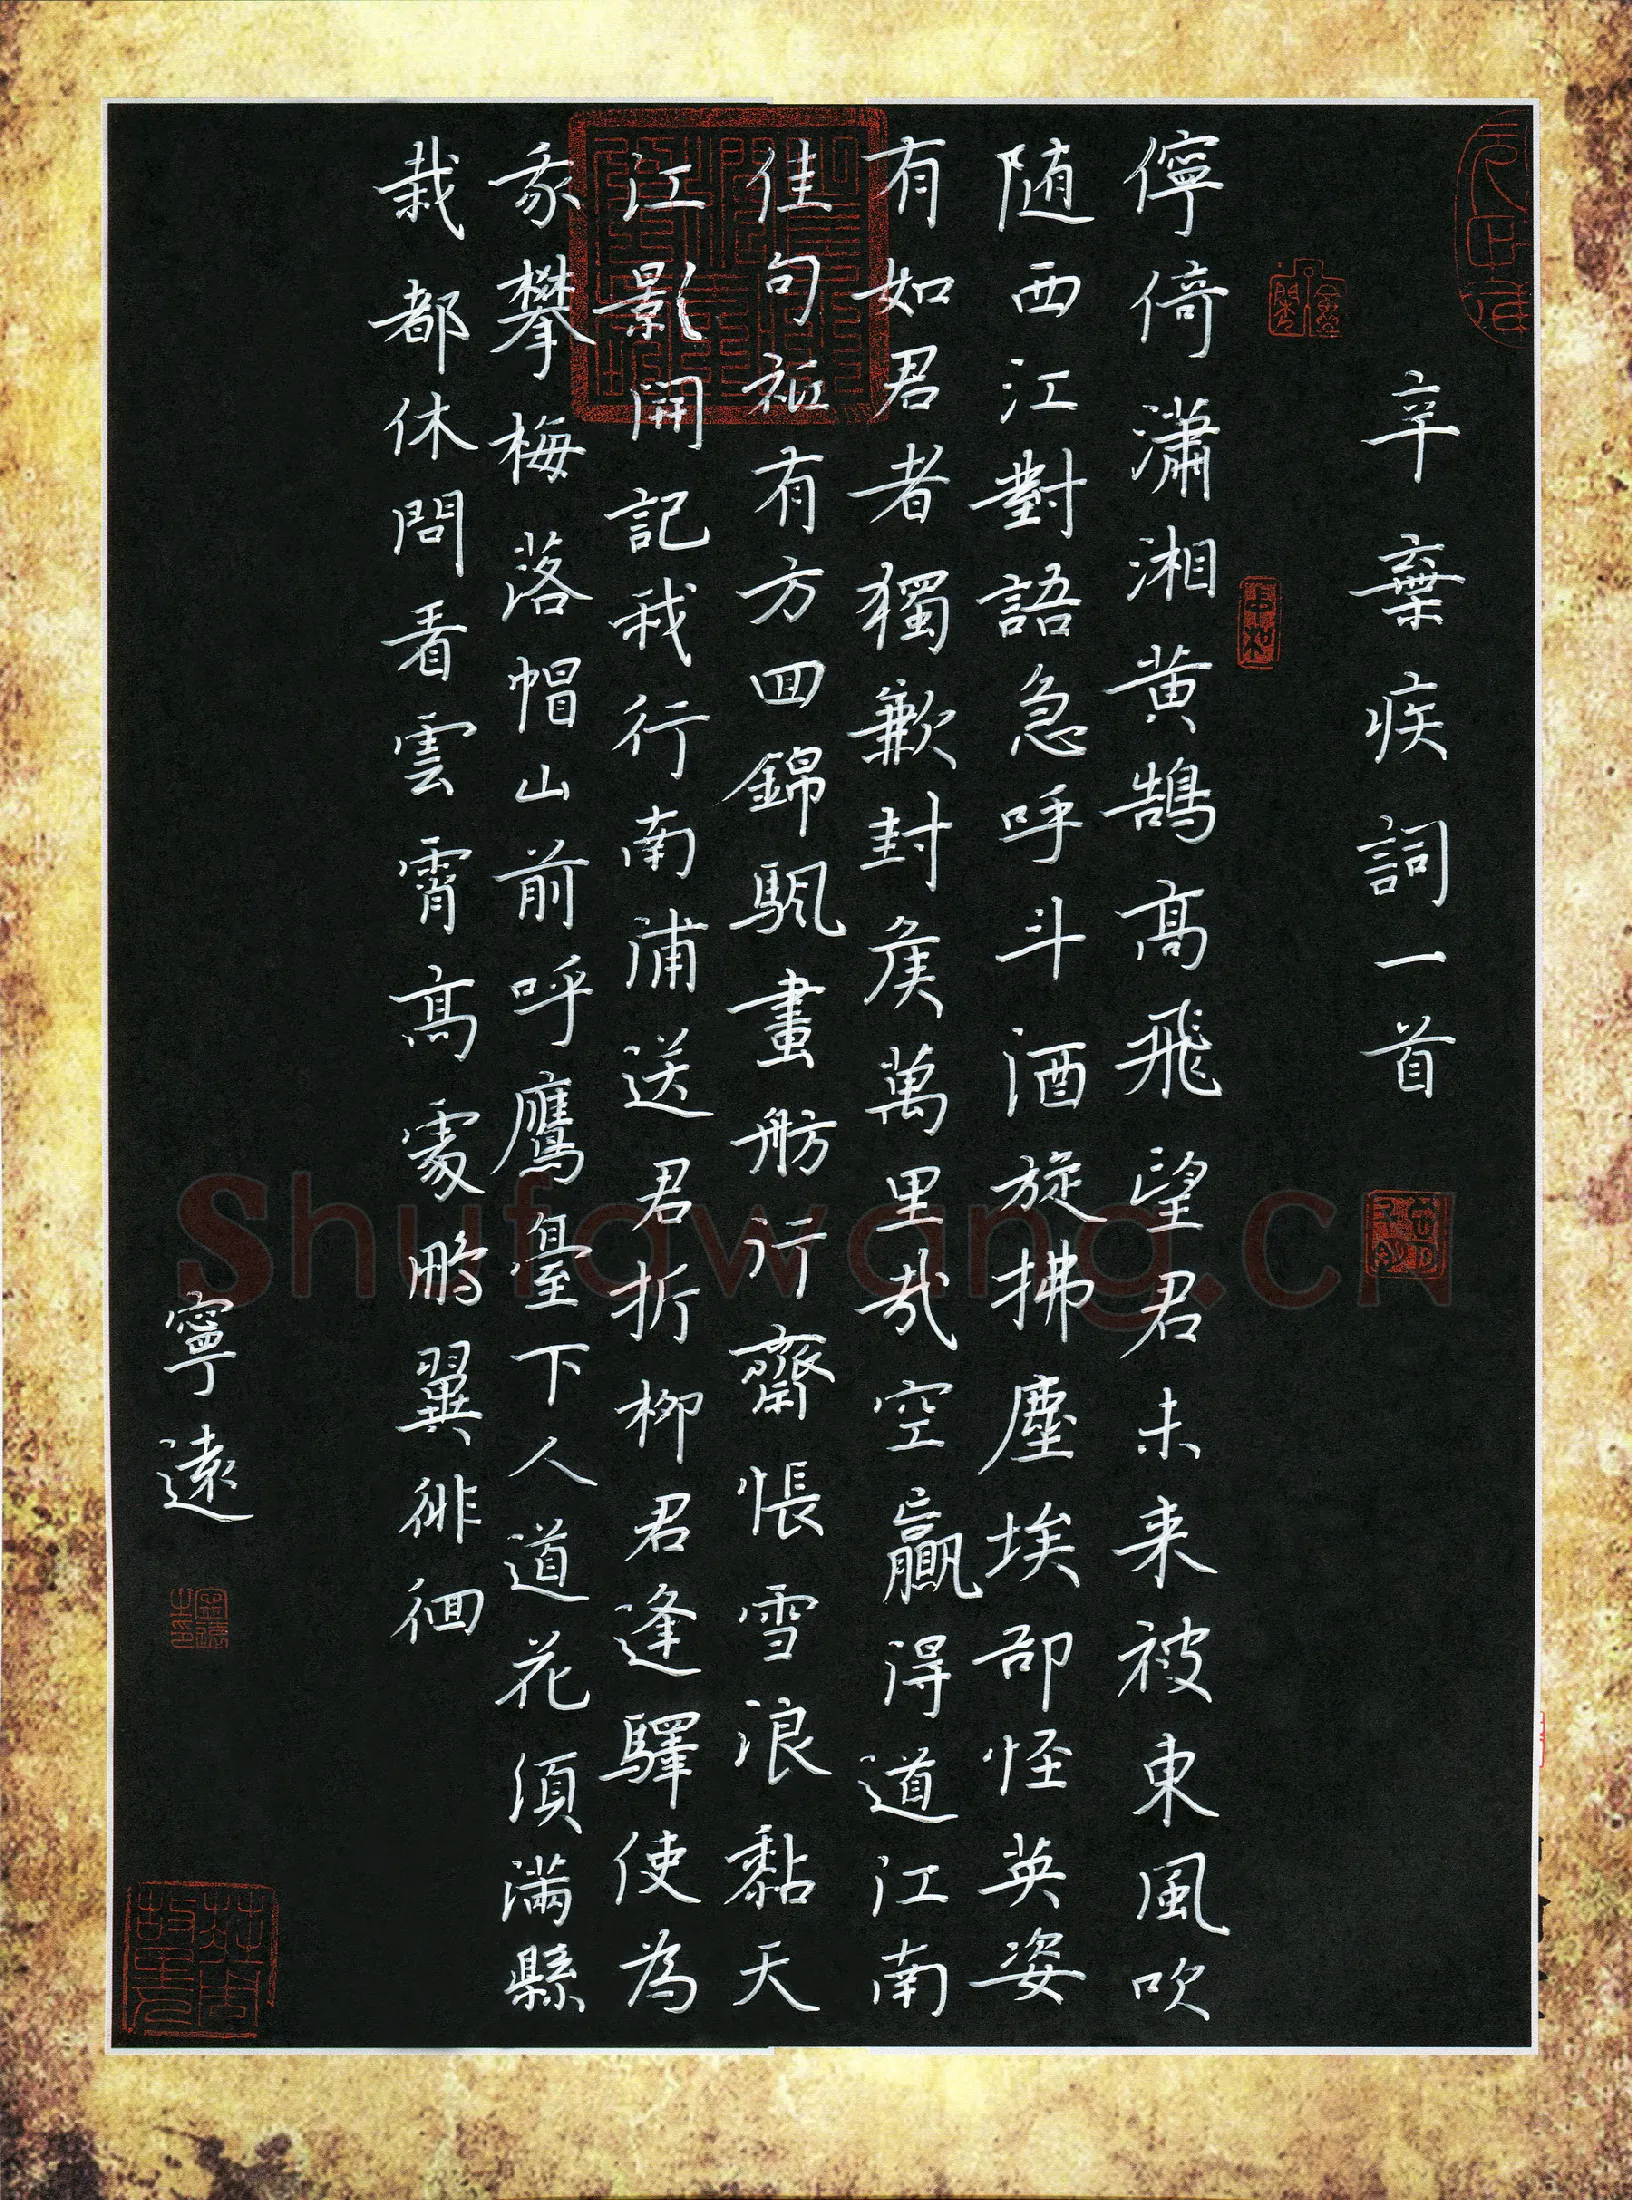 辛棄疾詞一首
儜倚瀟湘黄鵠高飛望君未来被東風吹
随西江對語急呼斗酒旋拂塵埃卻怪英姿
有如君者獨歉封侯萬里哉空贏得道江南
佳句祗有方回錦颿畫舫行齋悵雪浪黏天
江影開記我行南浦送君折柳君逢驛使為
我攀梅落帽山前呼鷹臺下人道花須滿縣
栽都休問看雲霄高處鵬翼徘徊
寧遠
Shufawang.CN